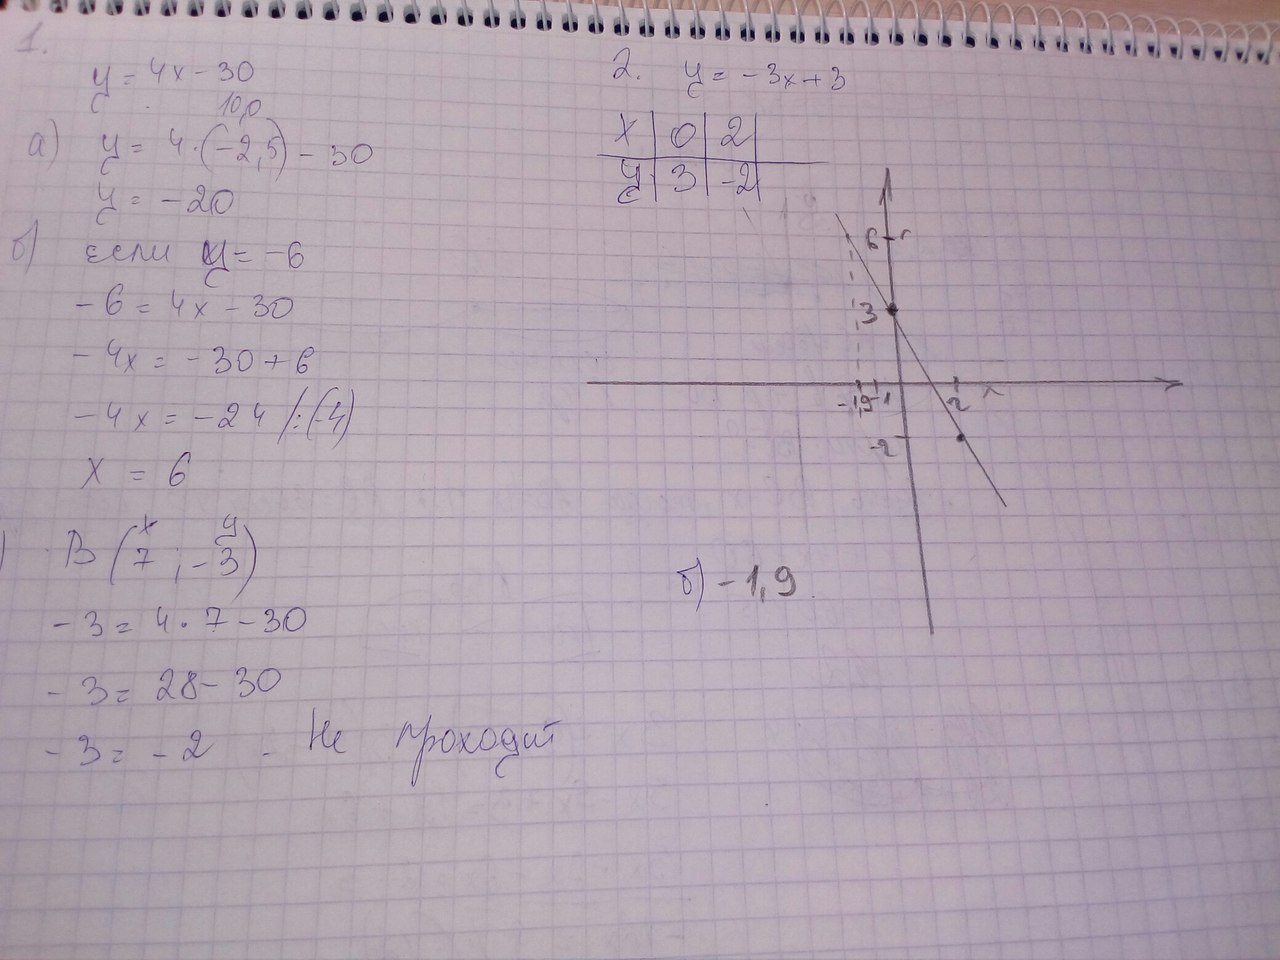 1.
y = 4x - 30
10,0
а) y = 4·(-2,5) - 30
y = -20
б) если y = -6
-6 = 4x - 30
-4x = -30 + 6
-4x = -24 /:(-4)
x = 6
) B (7 ; -3)
x y
-3 = 4·7 - 30
-3 = 28 - 30
-3 = -2 - Не проходит
2. y = -3x + 3
x | 0 | 2 |
y | 3 | -2 |
6
3
-1,9 -1 2
-2
б) -1,9